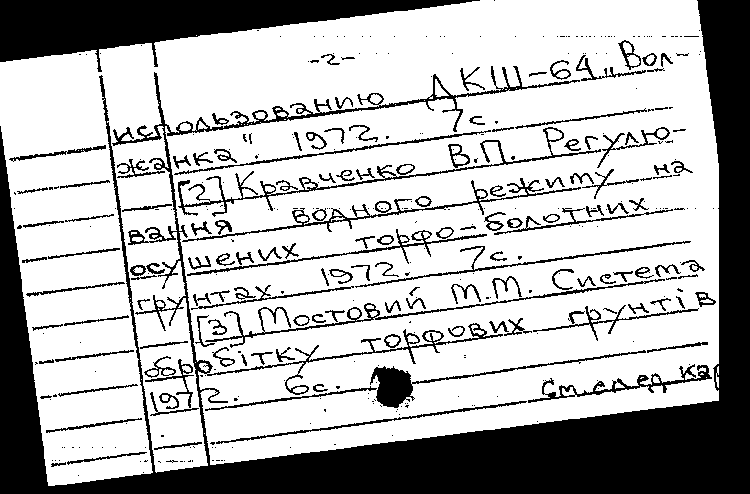 -2-
использованию ДКШ-64 „Вол-
жанка". 1972. 7с.
[2]. Кравченко В.П. Регулю-
вання водного режиму на
осушених торфо-болотних
грунтах. 1972. 7с.
[3]. Мостовий М.М. Система
обробітку торфових грунтів
1972. 6с.
См. след. кар